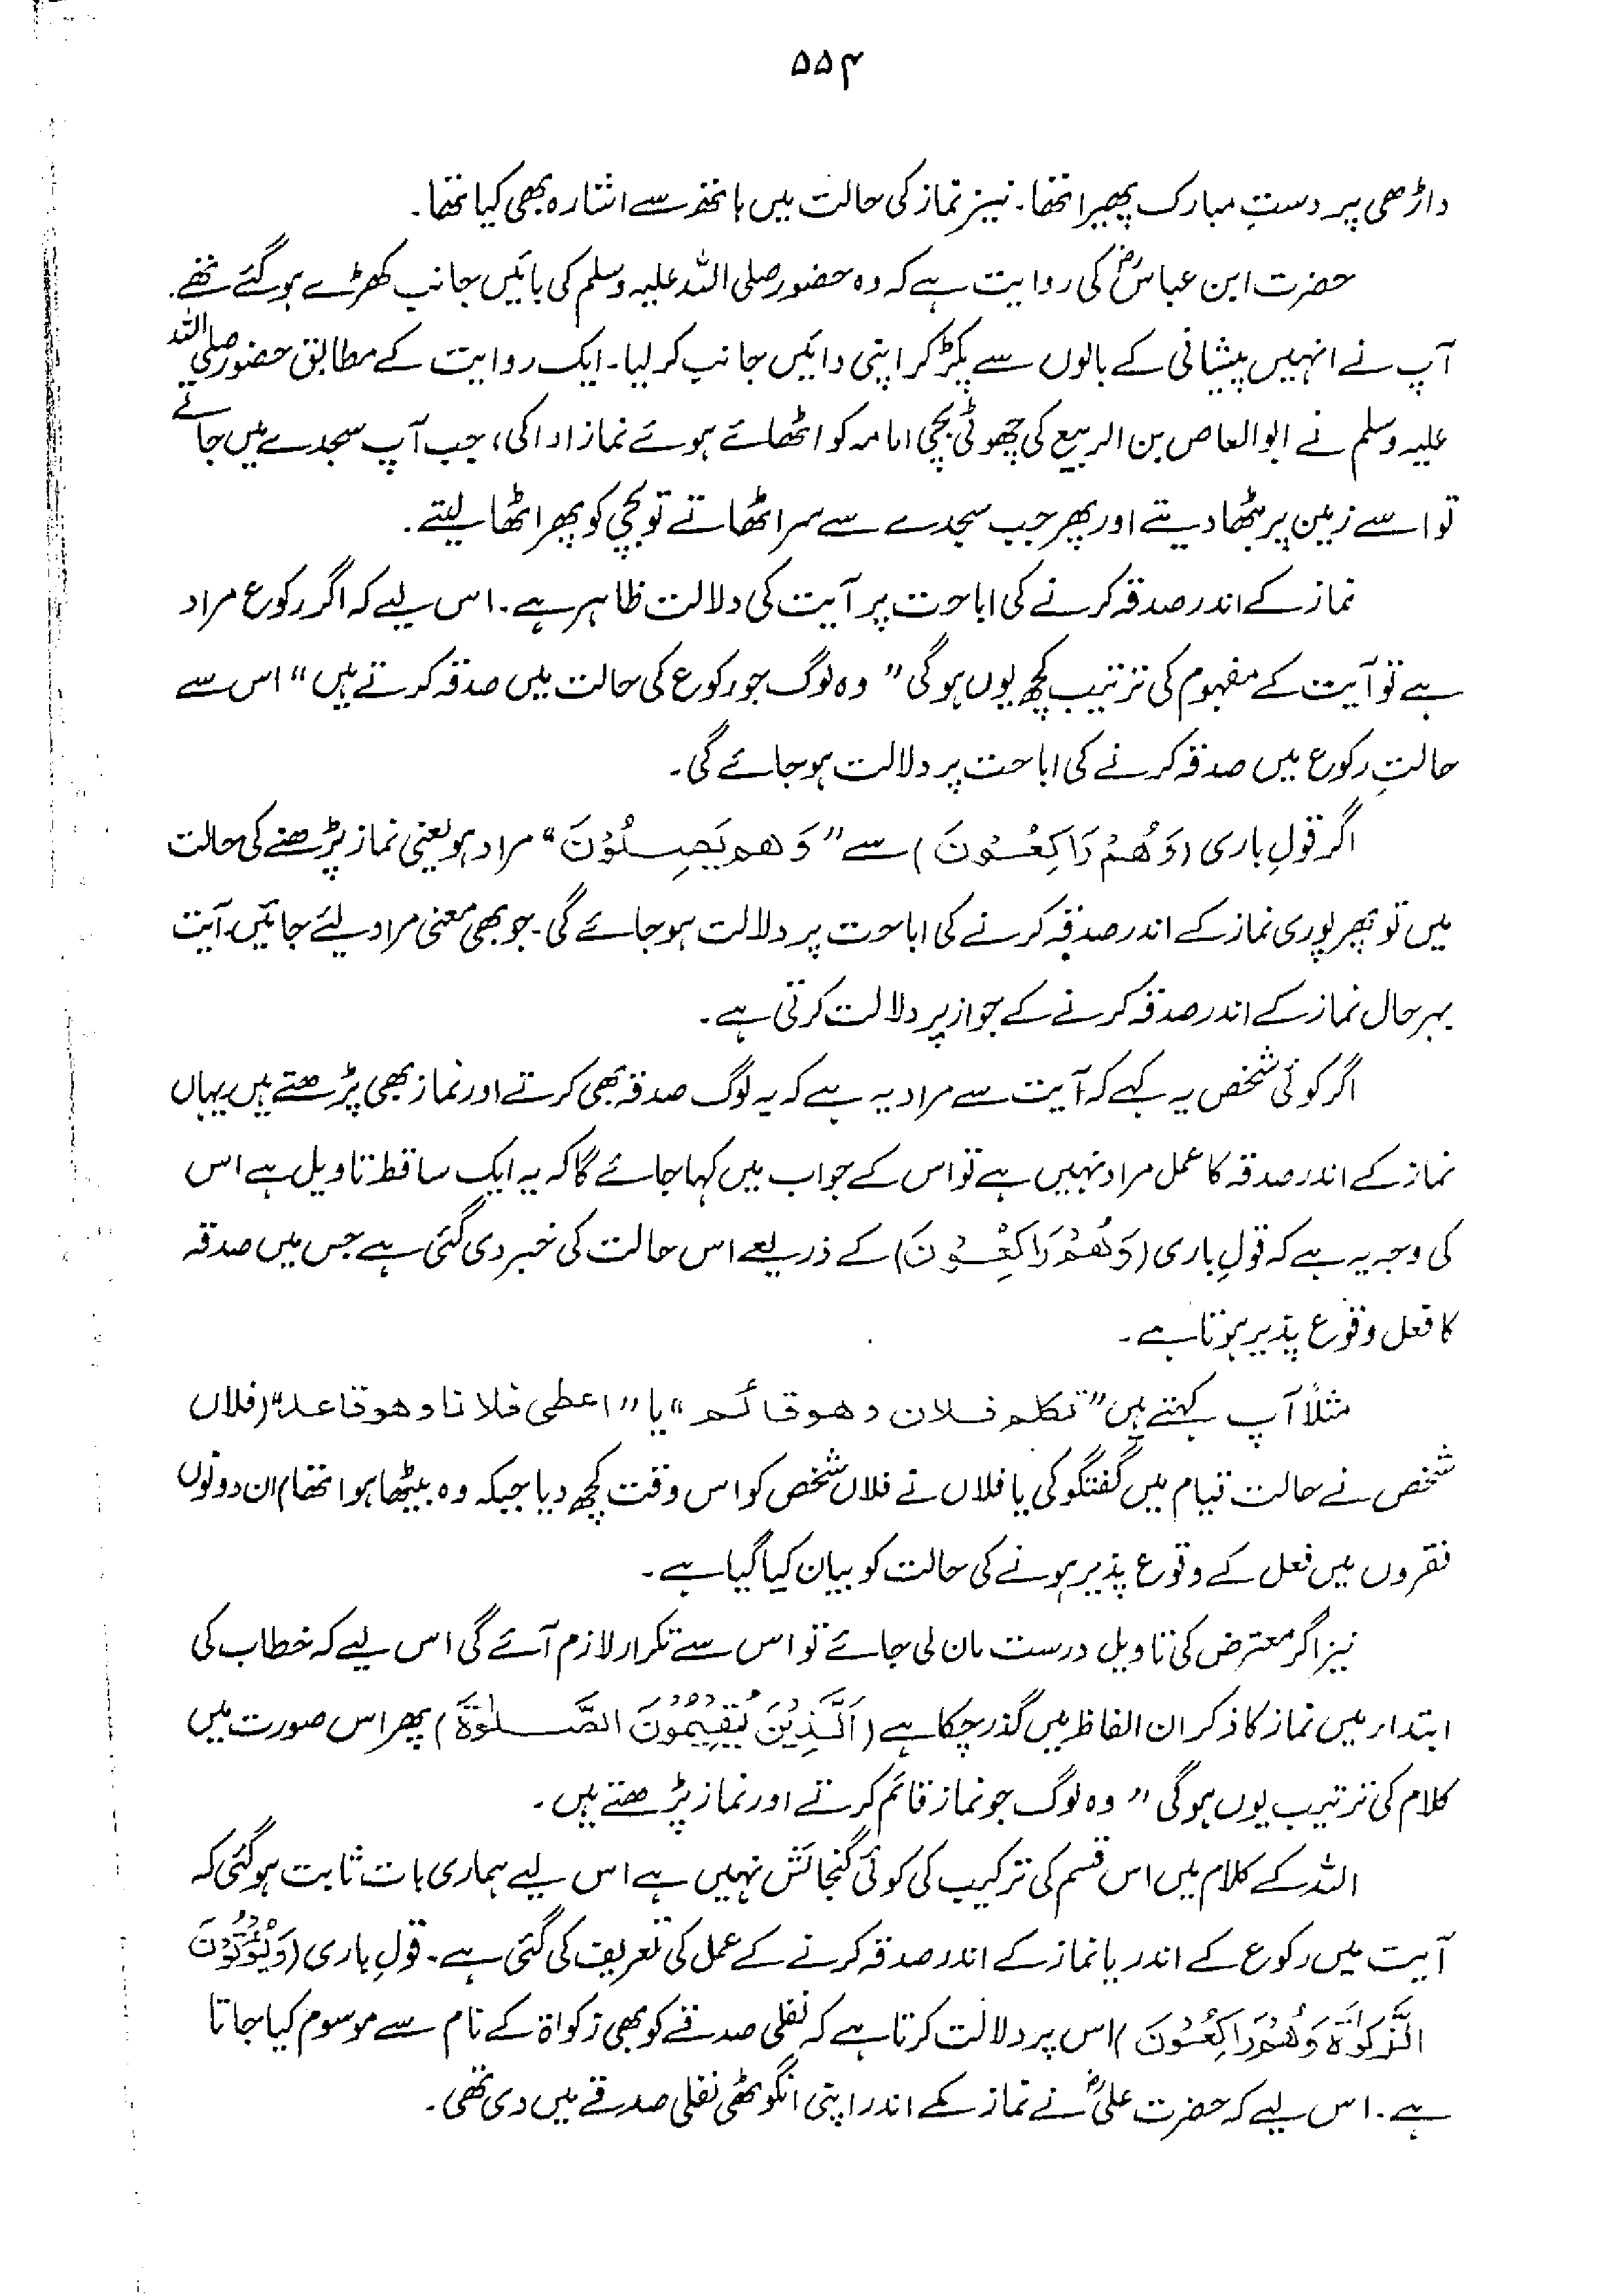 ۵۵۴
داڑھی پر دستِ مبارک پھیرا تھا۔ نیز نماز کی حالت میں ہاتھ سے اشارہ بھی کیا تھا۔
حضرت ابن عباسؓ کی روایت ہے کہ وہ حضور صلی اللہ علیہ وسلم کی بائیں جانب کھڑے ہو گئے تھے۔
آپ نے انہیں پیشانی کے بالوں سے پکڑ کر اپنی دائیں جانب کر لیا۔ ایک روایت کے مطابق حضور صلی اللہ
علیہ وسلم نے ابو العاص بن الربیع کی چھوٹی بچی امامہ کو اٹھائے ہوئے نماز ادا کی، جب آپ سجدے میں جاتے
تو اسے زمین پر بٹھا دیتے اور پھر جب سجدے سے سر اٹھاتے تو بچی کو پھر اٹھا لیتے۔
نماز کے اندر صدقہ کرنے کی اباحت پر آیت کی دلالت ظاہر ہے۔ اس لیے کہ اگر رکوع مراد
ہے تو آیت کے مفہوم کی ترتیب کچھ یوں ہو گی ” وہ لوگ جو رکوع کی حالت میں صدقہ کرتے ہیں “ اس سے
حالتِ رکوع میں صدقہ کرنے کی اباحت پر دلالت ہو جائے گی۔
اگر قولِ باری (وَهُمْ رَاكِعُوْنَ) سے ” وَهم يَصِلُوْنَ “ مراد ہو یعنی نماز پڑھنے کی حالت
میں تو پھر پوری نماز کے اندر صدقہ کرنے کی اباحت پر دلالت ہو جائے گی۔ جو بھی معنی مراد لیئے جائیں۔ آیت
بہر حال نماز کے اندر صدقہ کرنے کے جواز پر دلالت کرتی ہے۔
اگر کوئی شخص یہ کہے کہ آیت سے مراد یہ ہے کہ یہ لوگ صدقہ بھی کرتے اور نماز بھی پڑھتے ہیں یہاں
نماز کے اندر صدقہ کا عمل مراد نہیں ہے تو اس کے جواب میں کہا جائے گا کہ یہ ایک ساقط تاویل ہے اس
کی وجہ یہ ہے کہ قولِ باری (وَهُمْ رَاكِعُوْنَ) کے ذریعے اس حالت کی خبر دی گئی ہے جس میں صدقہ
کا فعل وقوع پذیر ہوتا ہے۔
مثلاً آپ کہتے ہیں ” تکلم فلان وهو قائم “ یا ” اعطی فلانا وهو قاعد “ (فلاں
شخص نے حالت قیام میں گفتگو کی یا فلاں نے فلاں شخص کو اس وقت کچھ دیا جبکہ وہ بیٹھا ہوا تھا) ان دونوں
فقروں میں فعل کے وقوع پذیر ہونے کی حالت کو بیان کیا گیا ہے۔
نیز اگر معترض کی تاویل درست مان لی جائے تو اس سے تکرار لازم آئے گی اس لیے کہ خطاب کی
ابتداء میں نماز کا ذکر ان الفاظ میں گذر چکا ہے (اَلَّذِيْنَ يُقِيْمُوْنَ الصَّلٰوةَ) پھر اس صورت میں
کلام کی ترتیب یوں ہو گی ” وہ لوگ جو نماز قائم کرتے اور نماز پڑھتے ہیں۔
اللہ کے کلام میں اس قسم کی ترکیب کی کوئی گنجائش نہیں ہے اس لیے ہماری بات ثابت ہو گئی کہ
آیت میں رکوع کے اندر یا نماز کے اندر صدقہ کرنے کے عمل کی تعریف کی گئی ہے۔ قولِ باری (وَيُؤْتُوْنَ
الزَّكٰوةَ وَهُمْ رَاكِعُوْنَ) اس پر دلالت کرتا ہے کہ نفلی صدقے کو بھی زکواۃ کے نام سے موسوم کیا جاتا
ہے۔ اس لیے کہ حضرت علیؓ نے نماز کے اندر اپنی انگوٹھی نفلی صدقے میں دی تھی۔